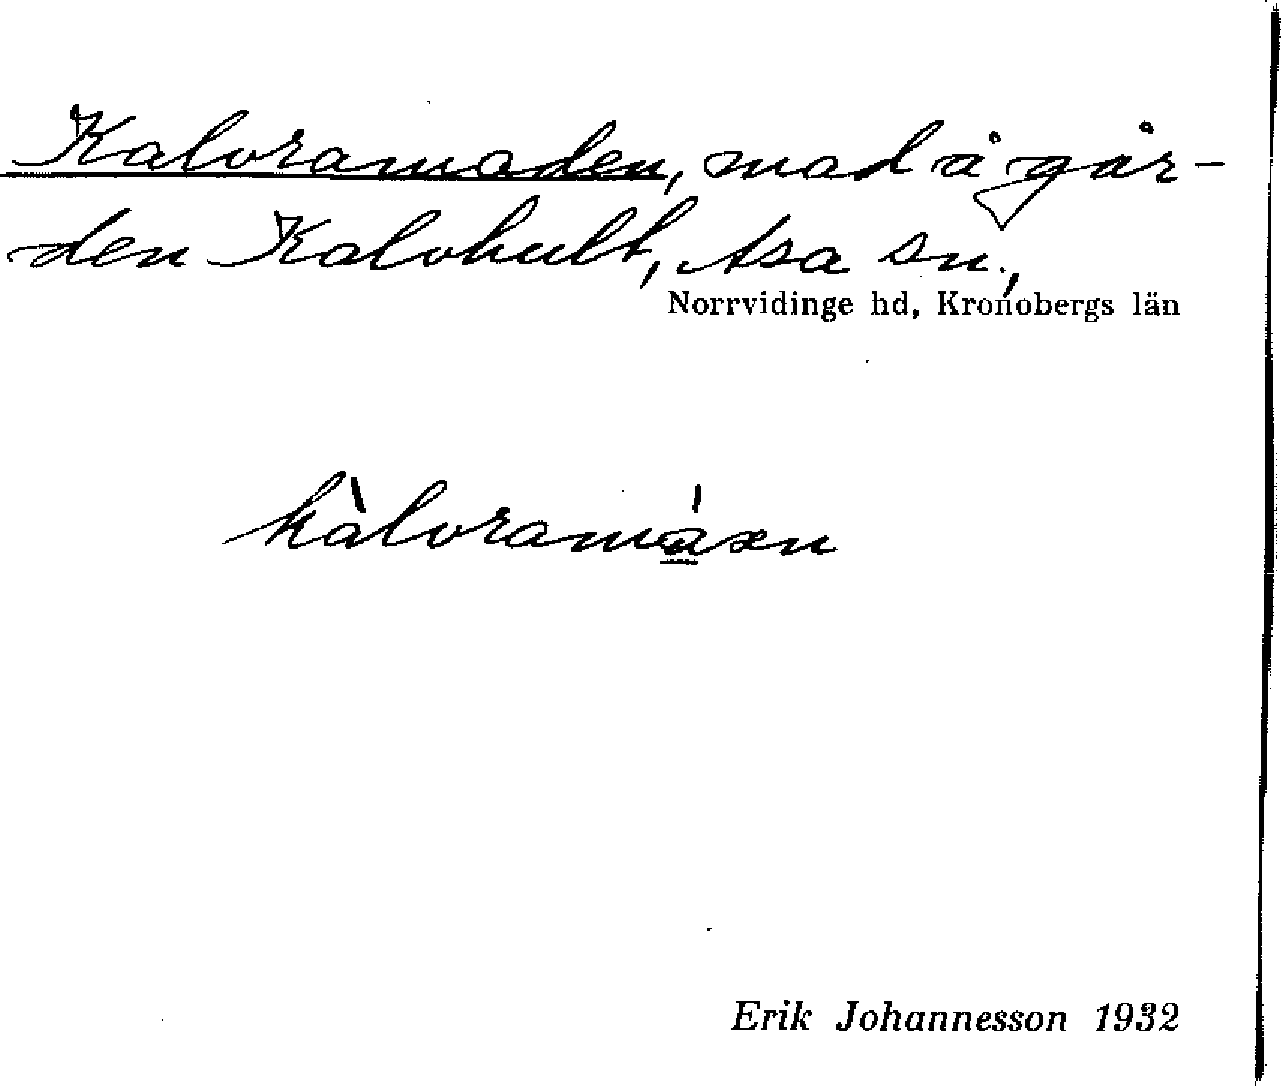 Kalvramaden, mad å går-
den Kalvhult, Asa sn.,
Norrvidinge hd, Kronobergs län
kàlvramáæn
Erik Johannesson 1932